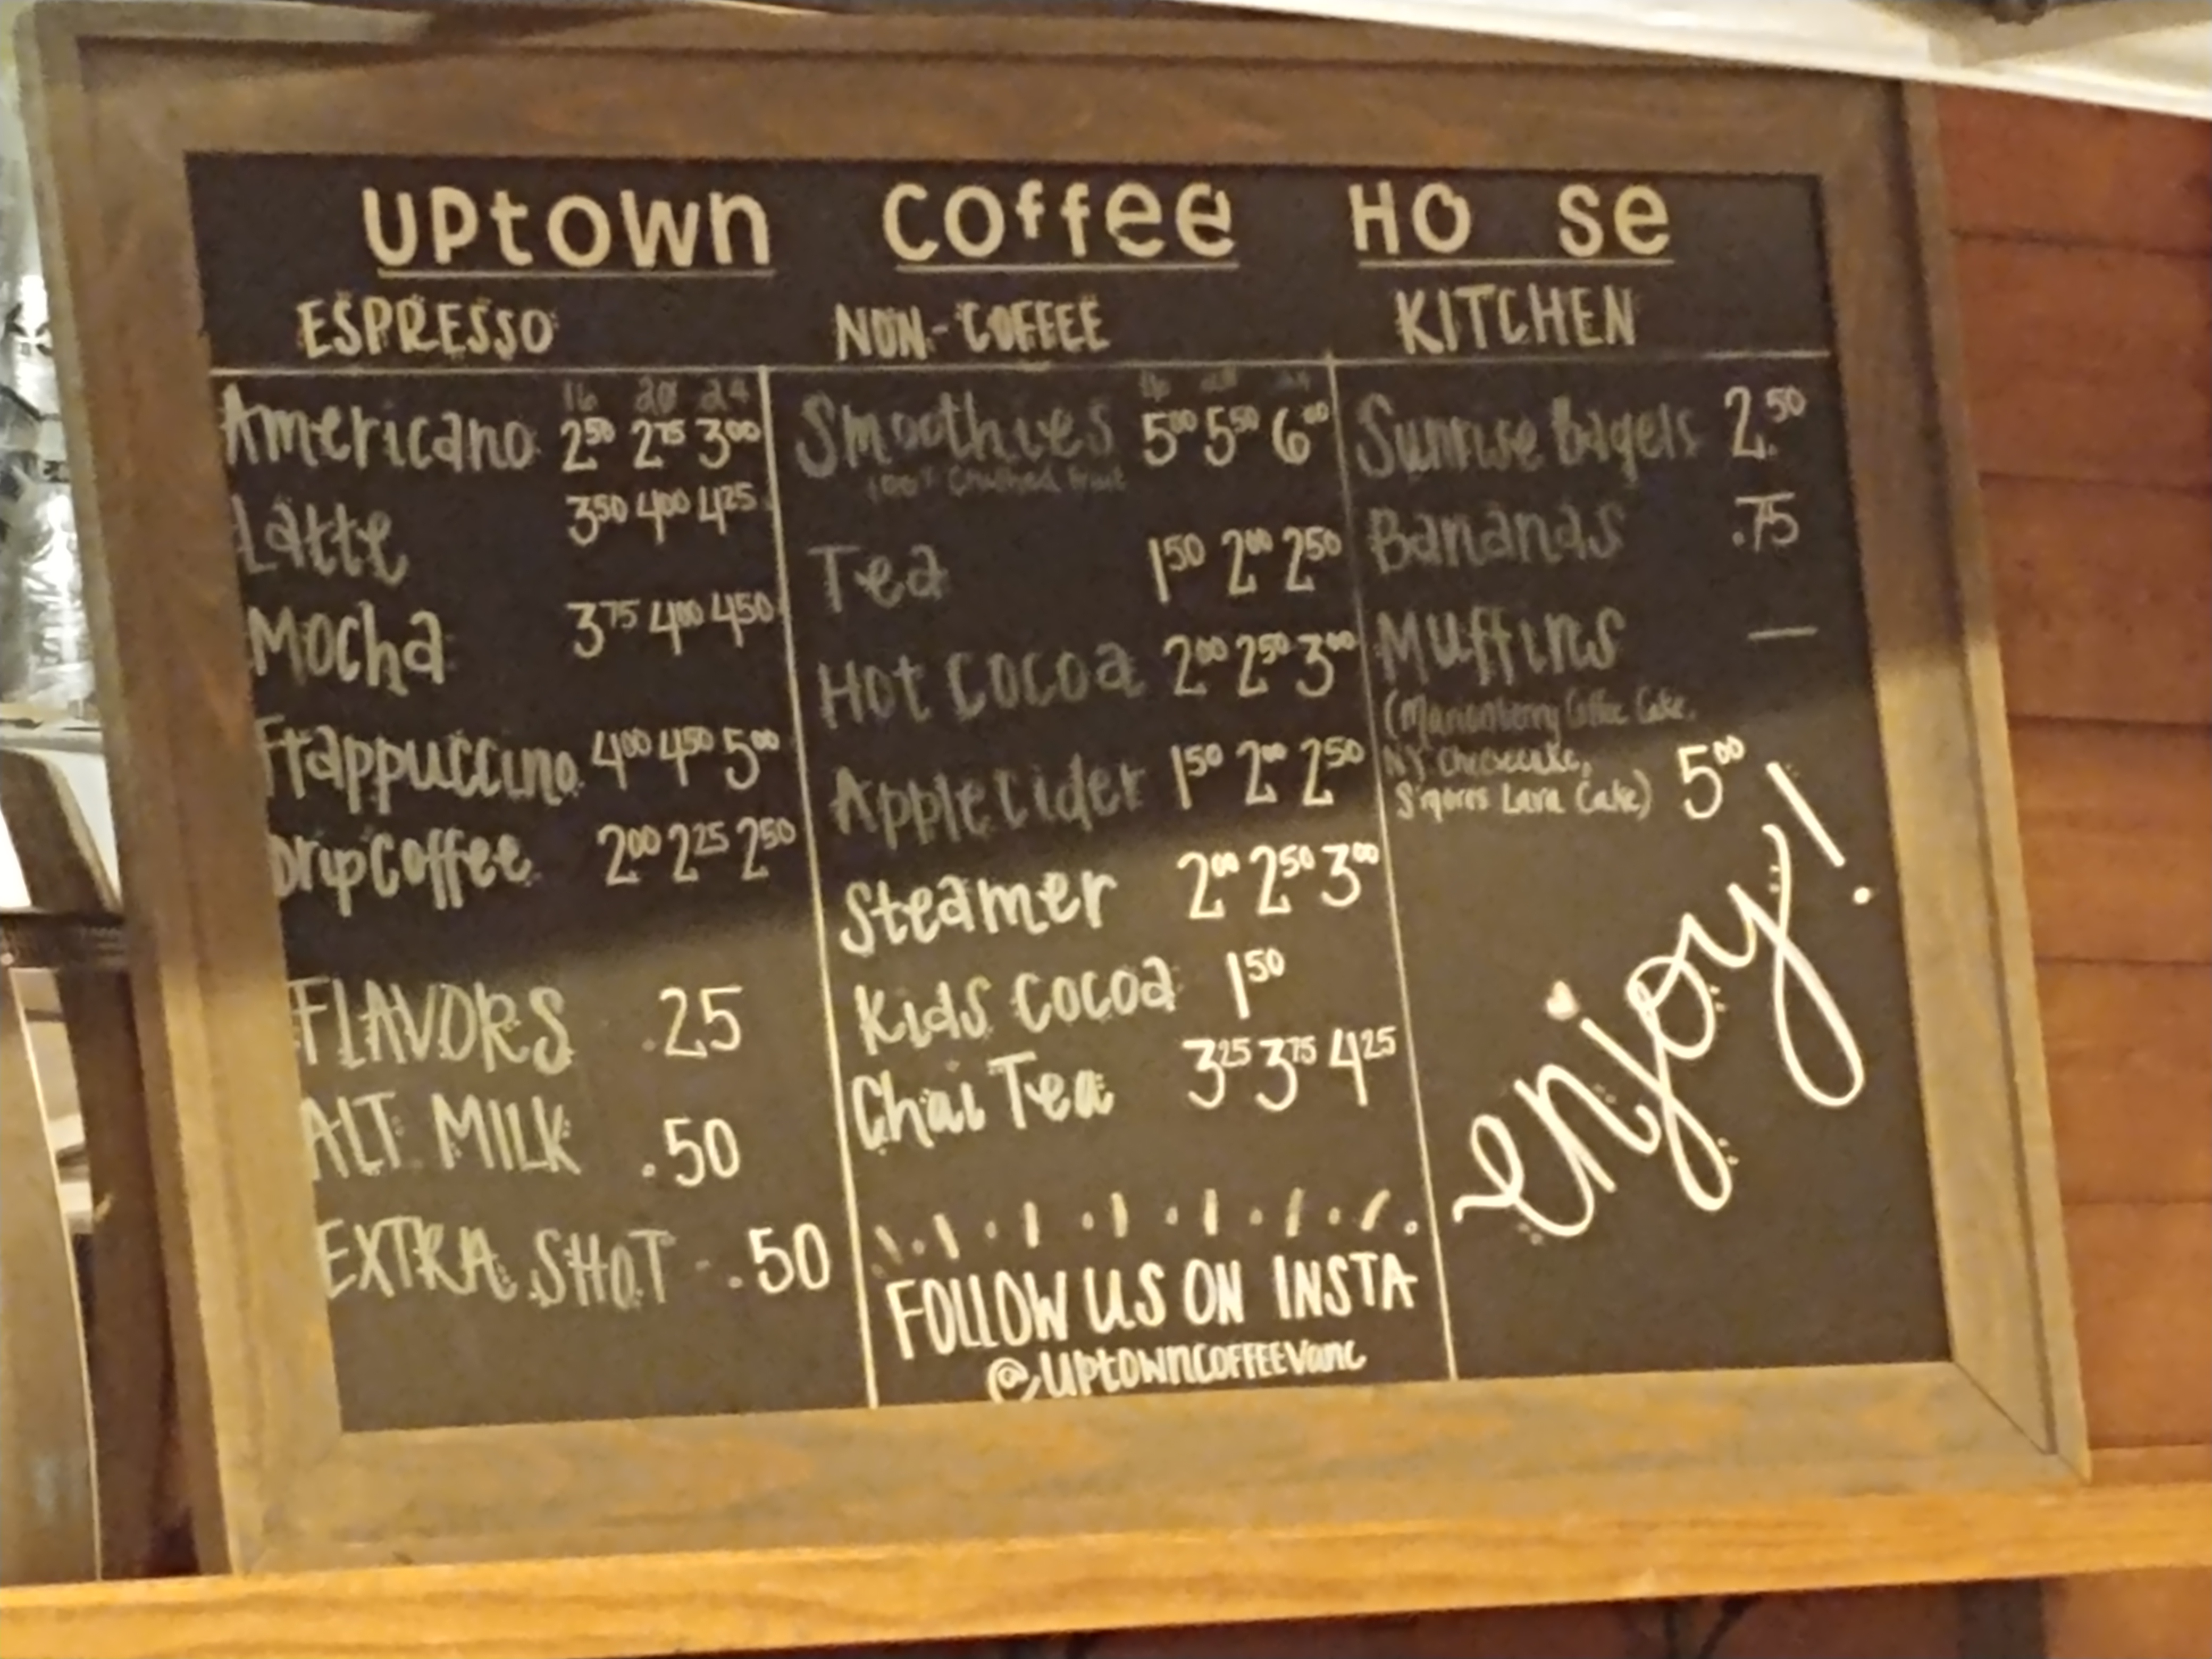 UPtown Coffee HO se
ESPRESSO
Americano 16 20 24
2.50 2.75 3.00
Latte 3.50 4.00 4.25
Mocha 3.75 4.00 4.50
Frappuccino 4.00 4.50 5.00
Drip Coffee 2.00 2.25 2.50
FLAVORS .25
ALT. MILK .50
EXTRA SHOT .50
NON-COFFEE
Smoothies 5.00 5.50 6.00
100% Crushed fruit
Tea 1.50 2.00 2.50
Hot Cocoa 2.00 2.50 3.00
Apple Cider 1.50 2.00 2.50
Steamer 2.00 2.50 3.00
Kids Cocoa 1.50
Chai Tea 3.25 3.75 4.25
FOLLOW US ON INSTA
@UPtOWnCOFFEEVanc
KITCHEN
Sunrise Bagels 2.50
Bananas .75
Muffins —
(Marionberry Coffee Cake,
NY Cheesecake,
S'mores Lava Cake) 5.00
enjoy!